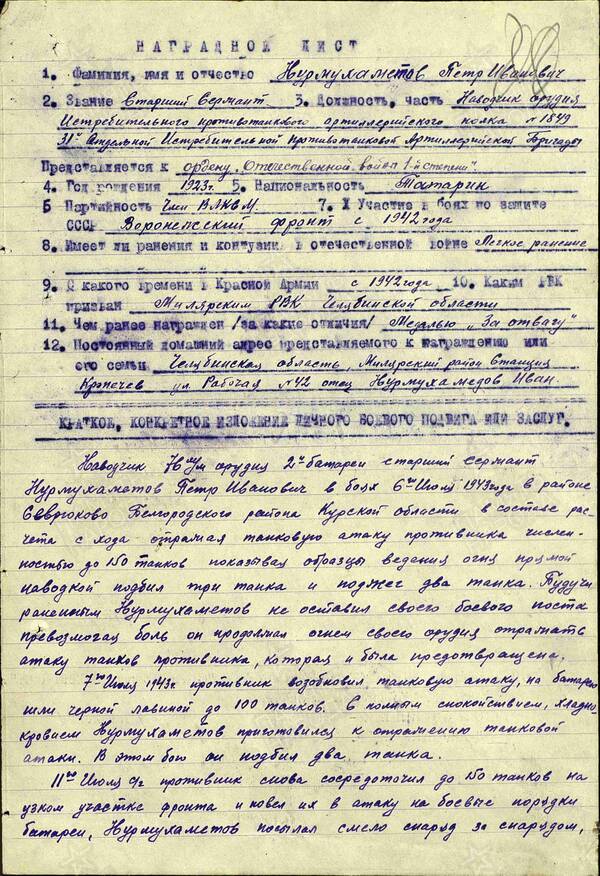 НАГРАДНОЙ ЛИСТ
1. Фамилия, имя и отчество Нурмухаметов Петр Иванович
2. Звание Старший Сержант 3. Должность, часть Наводчик орудия
Истребительного противотанкового артиллерийского полка №1849
31ой Отдельной Истребительной противотанковой Артиллерийской Бригады
Представляется к ордену „Отечественной войны 1-й степени"
4. Год рождения 1923г. 5. Национальность Татарин
6 Партийность Член ВЛКСМ 7. Участие в боях по защите
СССР Воронежский фронт с 1942 года
8. Имеет ли ранения и контузии в отечественной войне Легкое ранение
9. С какого времени в Красной Армии с 1942 года 10. Каким РВК
призван Милярским РВК Челябинской области
11. Чем ранее награжден /за какие отличия/ Медалью „За отвагу"
12. Постоянный домашний адрес представляемого к награждению или
его семьи Челябинская область, Милярский район Станция
Кропачев ул. Рабочая №42 отец Нурмухамедов Иван.
КРАТКОЕ, КОНКРЕТНОЕ ИЗЛОЖЕНИЕ ЛИЧНОГО БОЕВОГО ПОДВИГА ИЛИ ЗАСЛУГ.
Наводчик 76 м/м орудия 2ой батареи старший сержант
Нурмухаметов Петр Иванович в боях 6го Июля 1943 года в районе
Севрюково Белгородского района Курской области в составе рас-
чета с хода отражая танковую атаку противника числен-
ностью до 150 танков показывая образцы ведения огня прямой
наводкой подбил три танка и поджег два танка. Будучи
раненным Нурмухаметов не оставил своего боевого поста
превозмогая боль он продолжал огнем своего орудия отражать
атаку танков противника, которая и была предотвращена.
7го Июля 1943г. противник возобновил танковую атаку, на батарею
шли черной лавиной до 100 танков. С полным спокойствием, хладно-
кровием Нурмухаметов приготовился к отражению танковой
атаки. В этом бою он подбил два танка.
11го Июля с/г противник снова сосредоточил до 150 танков на
узком участке фронта и повел их в атаку на боевые порядки
батареи, Нурмухаметов посылал смело снаряд за снарядом,